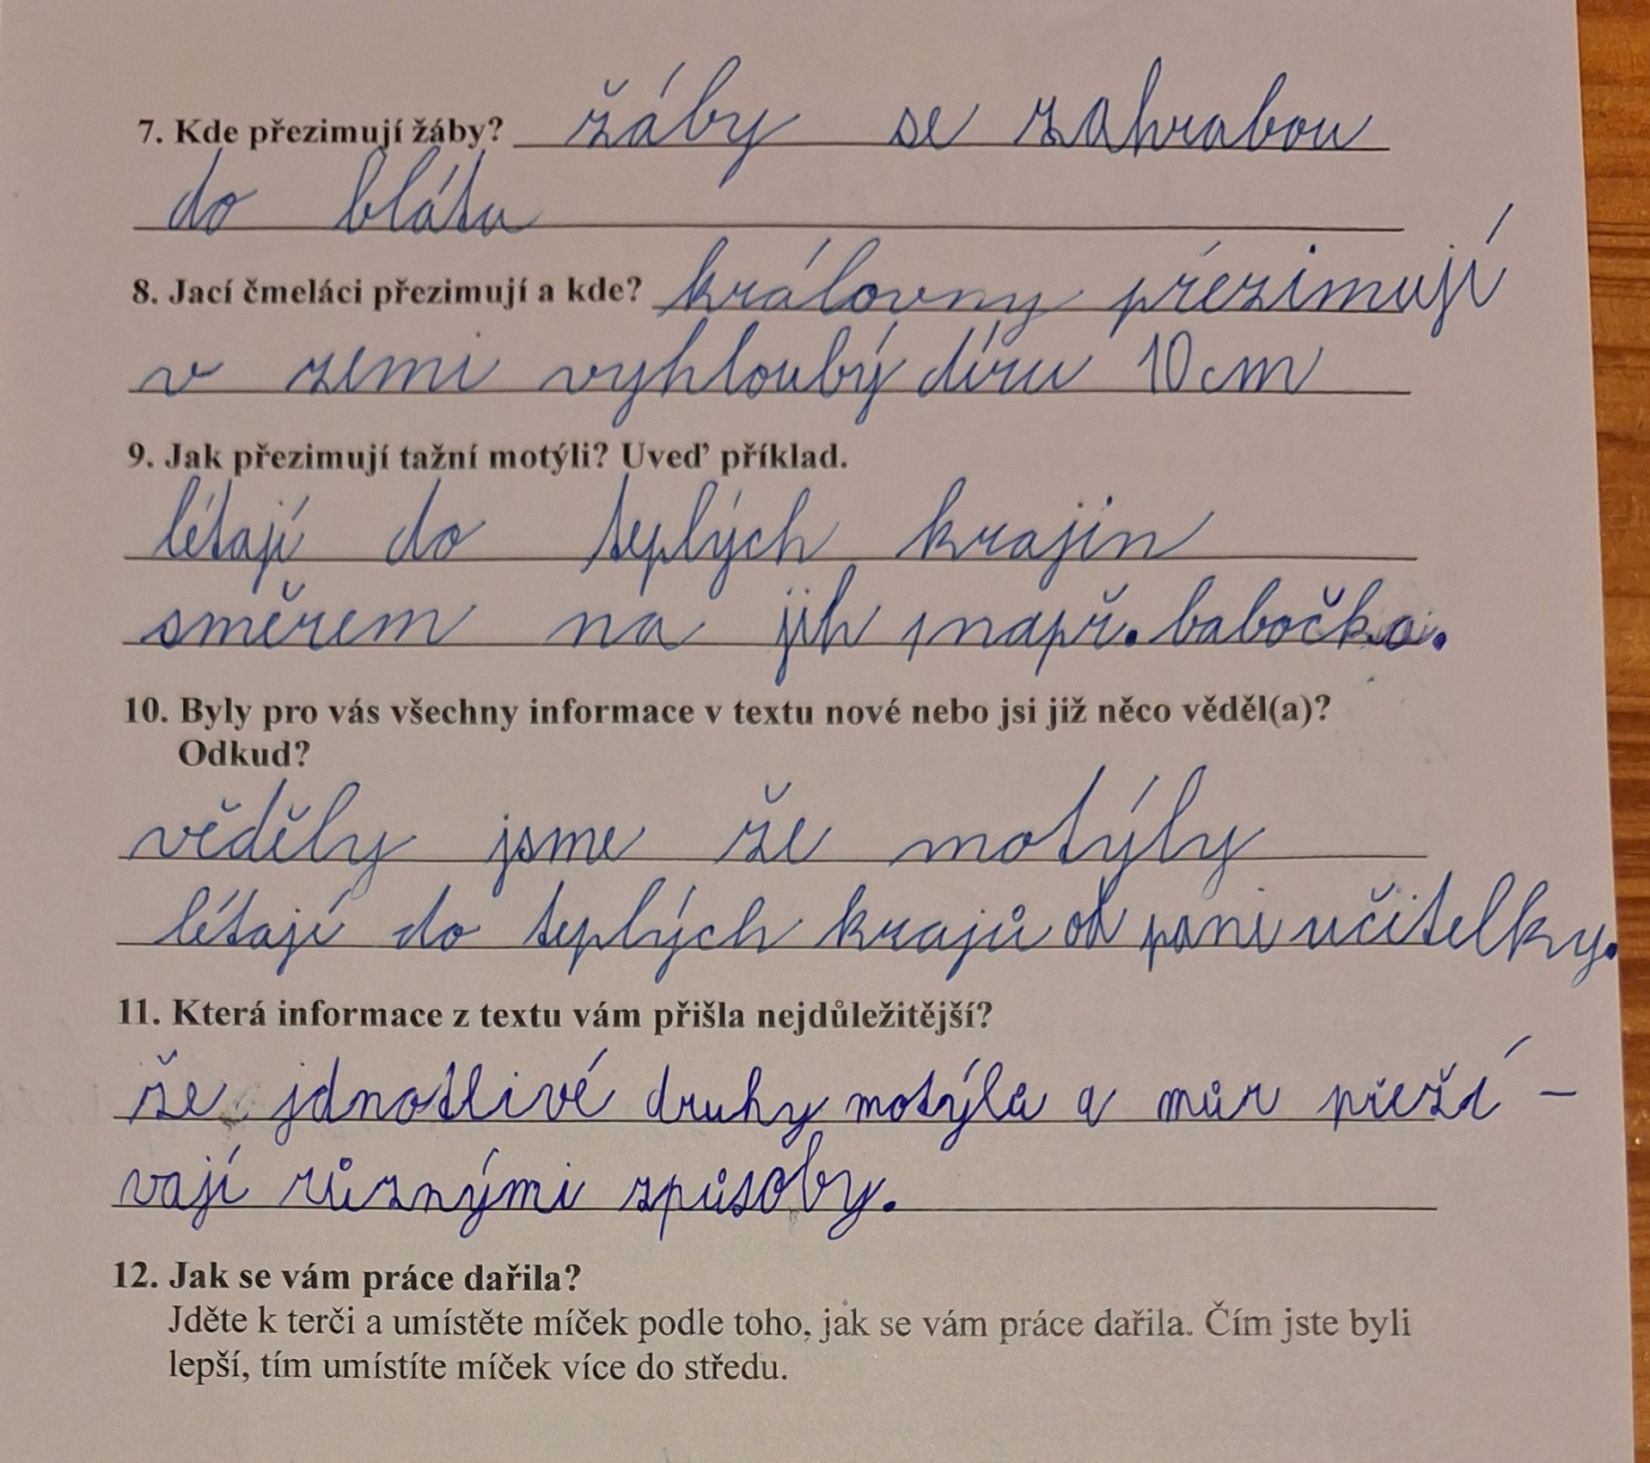 7. Kde přezimují žáby? žáby se zahrabou
do blátu
8. Jací čmeláci přezimují a kde? královny přezimují
v zemi vyhloubý díru 10 cm
9. Jak přezimují tažní motýli? Uveď příklad.
létají do teplých krajin
směrem na jih , např. babočka.
10. Byly pro vás všechny informace v textu nové nebo jsi již něco věděl(a)?
Odkud?
věděly jsme že motýly
létají do teplých krajů od paní učitelky.
11. Která informace z textu vám přišla nejdůležitější?
že jdnotlivé druhy motýlů a můr přeží-
vají různými způsoby.
12. Jak se vám práce dařila?
Jděte k terči a umístěte míček podle toho, jak se vám práce dařila. Čím jste byli
lepší, tím umístíte míček více do středu.